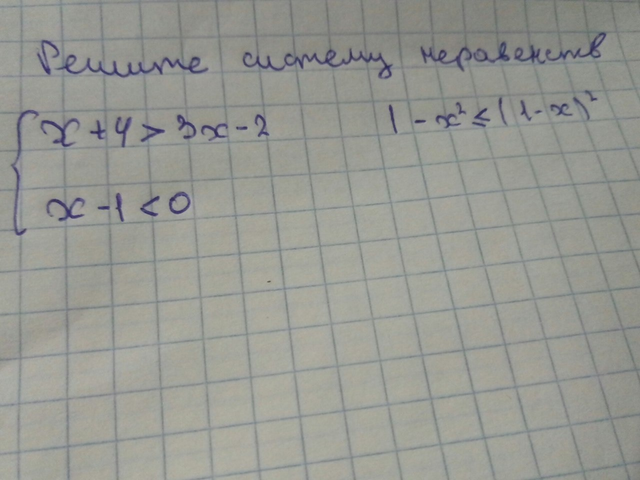 Решите систему неравенств
x + 4 > 3x - 2 1 - x² ≤ (1-x)²
x - 1 < 0